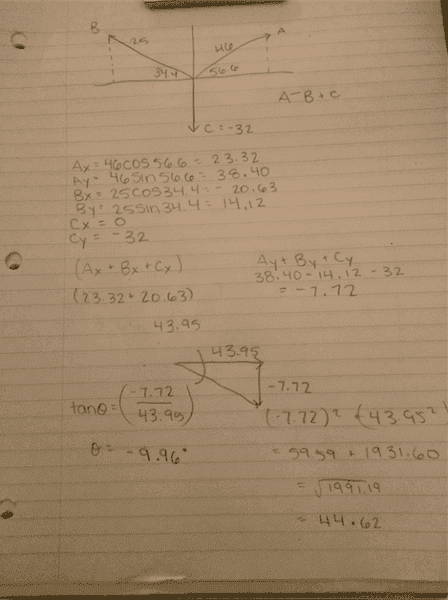 B
25
46
A
34.4
56.6
A-B+C
C=-32
Ax = 46cos56.6 = 23.32
Ay = 46sin56.6 = 38.40
Bx = 25cos34.4 = - 20.63
By = 25sin34.4 = 14.12
Cx = 0
Cy = -32
(Ax + Bx + Cx)
Ay + By + Cy
(23.32+20.63)
38.40-14.12-32
= -7.72
43.95
43.95
-7.72
tanθ = (-7.72/43.95)
(-7.72)² + (43.95²)
θ = -9.96°
= 59.59 + 1931.60
= √1991.19
= 44.62